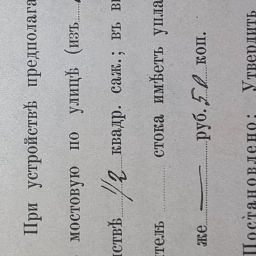 При устройствѣ предполага
мостовую по улицѣ (изъ
нствѣ 1/2 квадр. саж.; въ в
тель стока имѣетъ упла
же — руб. 50 коп.
Постановлено: Утвердить